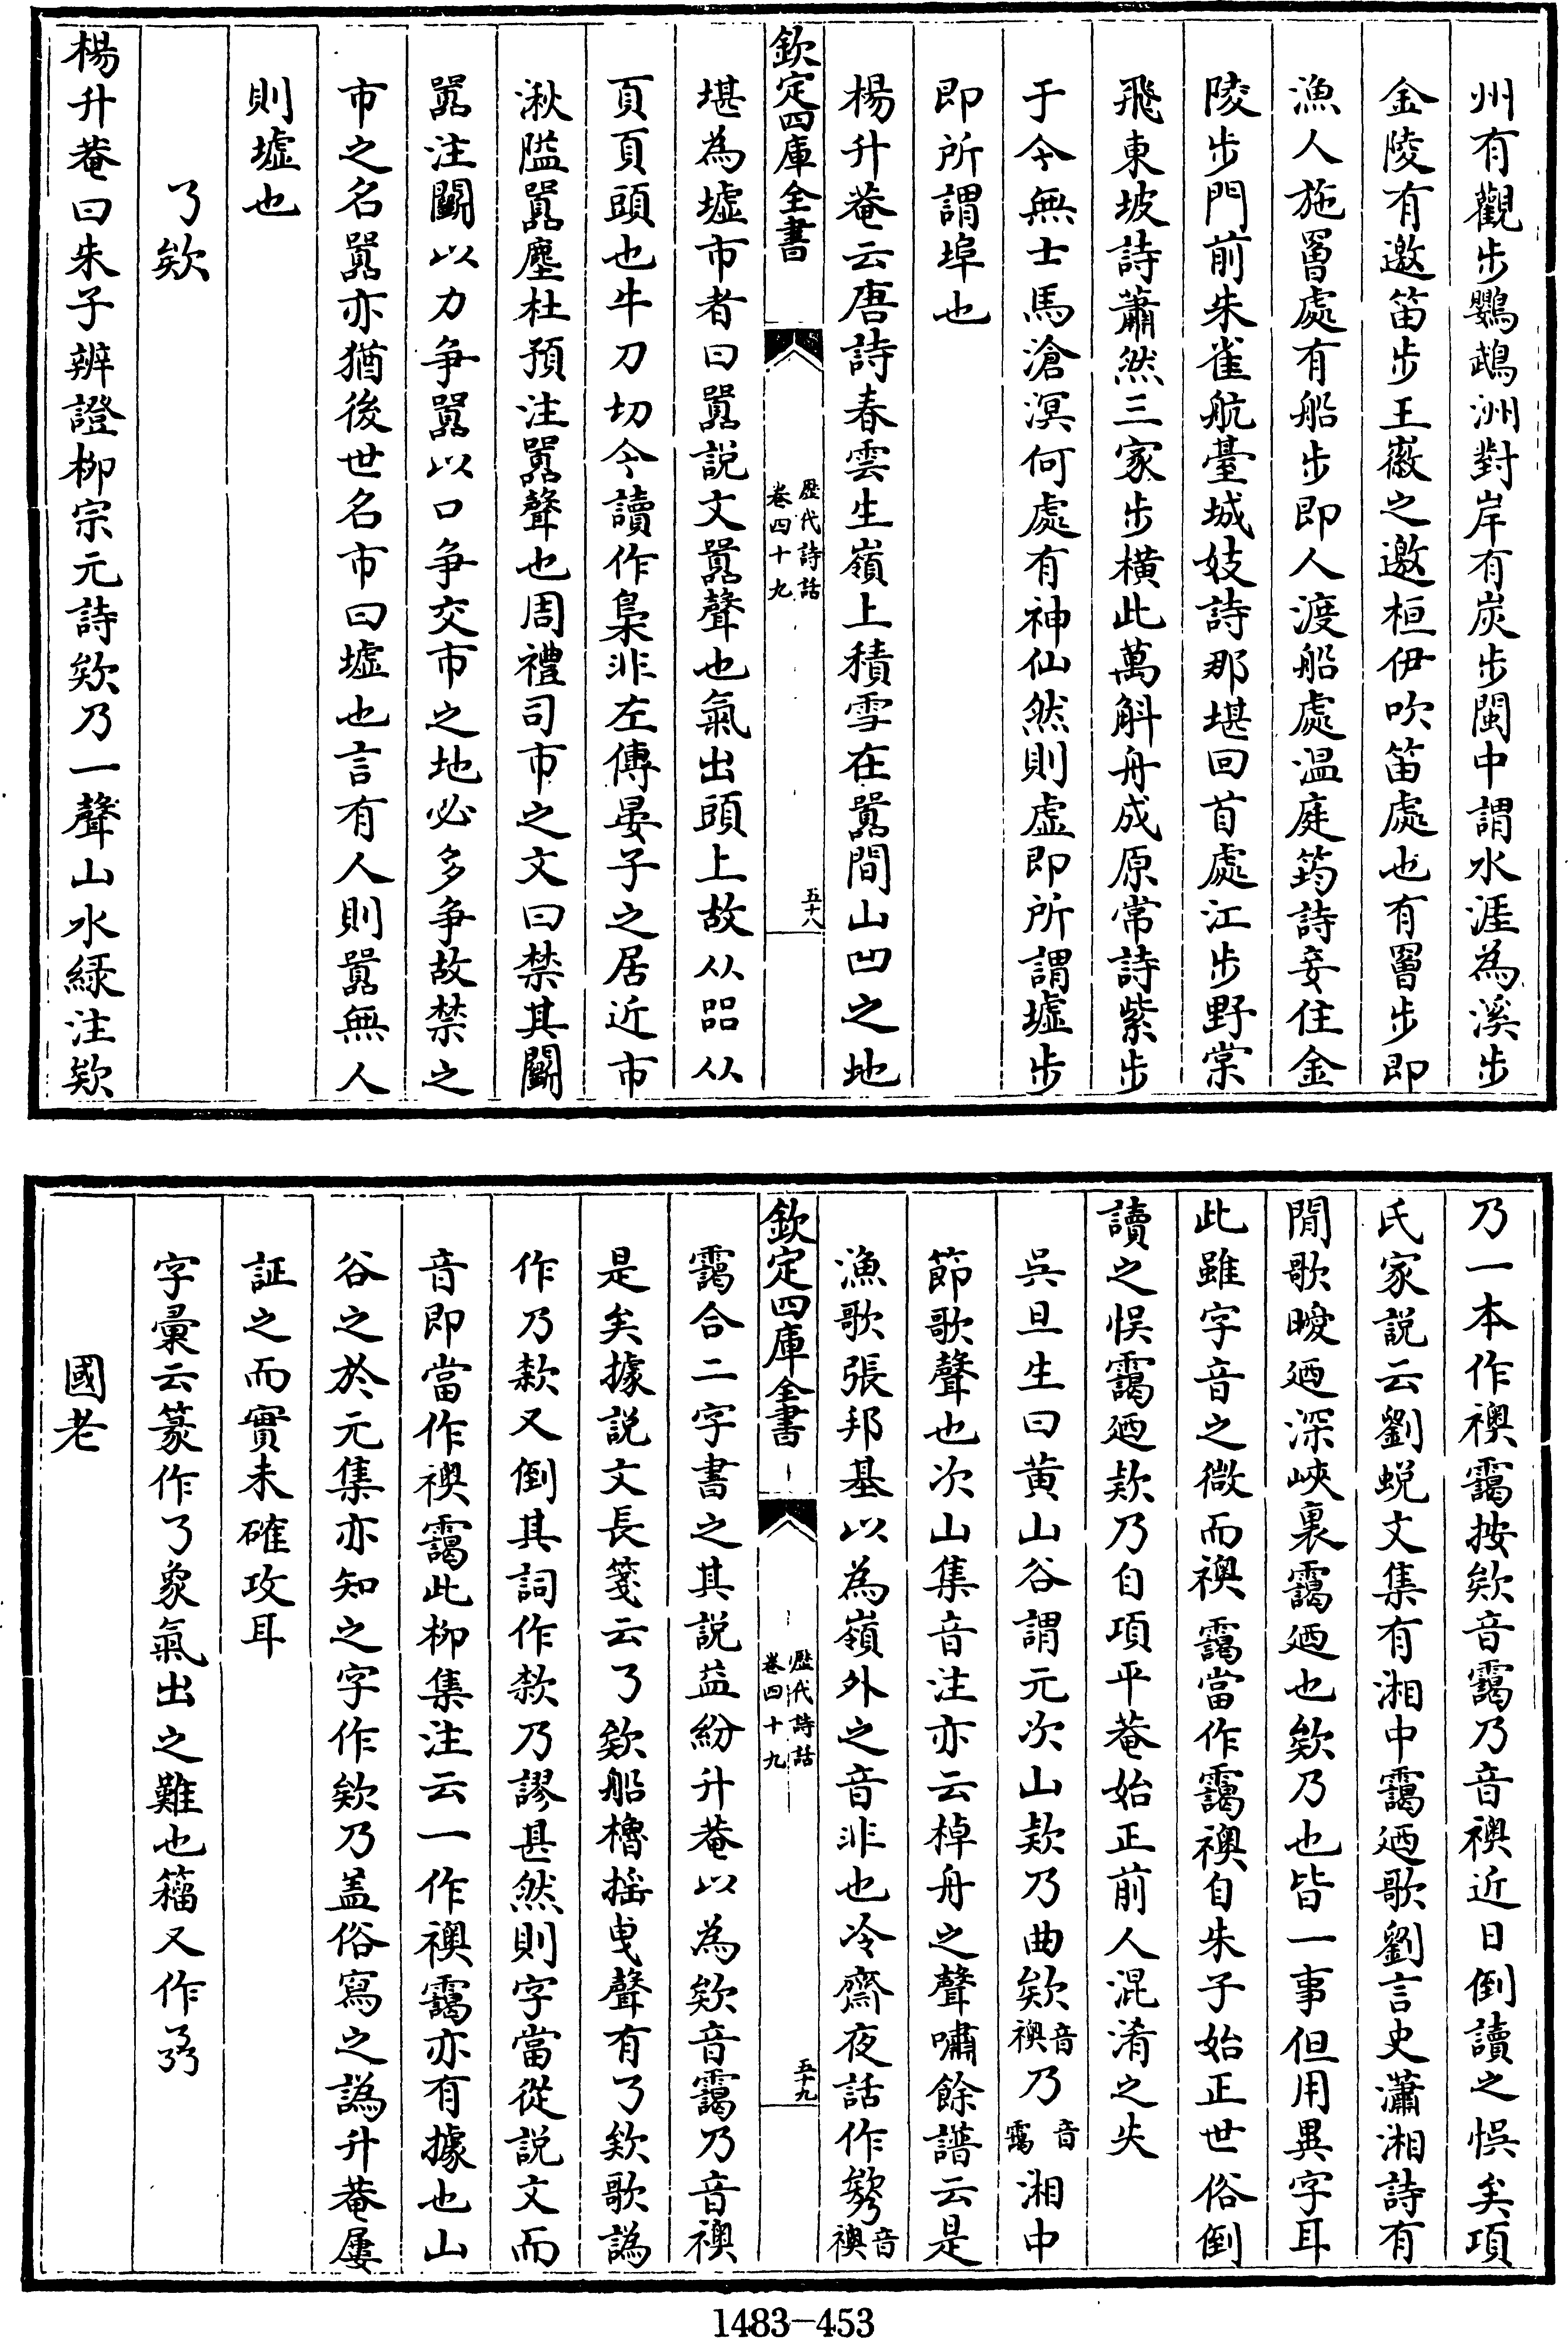 州有觀步鸚鵡洲對岸有炭步閩中謂水涯為溪步
金陵有邀笛步王徽之邀桓伊吹笛處也有罾步即
漁人施罾處有船步即人渡船處温庭筠詩妾住金
陵步門前朱雀航臺城妓詩那堪回首處江步野棠
飛東坡詩蕭然三家步橫此萬斛舟成原常詩紫步
于今無士馬滄溟何處有神仙然則虚即所謂墟步
即所謂埠也
楊升菴云唐詩春雲生嶺上積雪在嚣間山凹之地
欽定四庫全書
歷代詩話
卷四十九
五十八
堪為墟市者曰嚣説文嚣聲也氣出頭上故从㗊从
頁頁頭也牛刀切今讀作梟非左傳晏子之居近市
湫隘嚣塵杜預注嚣聲也周禮司市之文曰禁其鬭
嚣注鬭以力争嚣以口争交市之地必多争故禁之
市之名嚣亦猶後世名市曰墟也言有人則嚣無人
則墟也
了欸
楊升菴曰朱子辨證柳宗元詩欸乃一聲山水緑注欸
乃一本作襖靄按欸音靄乃音襖近日倒讀之悞矣項
氏家説云劉蜕文集有湘中靄廼歌劉言史瀟湘詩有
閒歌曖廼深峽裏靄廼也欸乃也皆一事但用異字耳
此雖字音之微而襖靄當作靄襖自朱子始正世俗倒
讀之悞靄廼欵乃自項平菴始正前人混淆之失
吳旦生曰黄山谷謂元次山欵乃曲欸音襖乃音靄湘中
節歌聲也次山集音注亦云棹舟之聲嘯餘譜云是
漁歌張邦基以為嶺外之音非也冷齋夜話作音襖
欽定四庫全書
歷代詩話
卷四十九
五十九
靄合二字書之其説益紛升菴以為欸音靄乃音襖
是矣據説文長箋云了欸船櫓摇曵聲有了欸歌譌
作乃欵又倒其詞作欵乃謬甚然則字當從説文而
音即當作襖靄此柳集注云一作襖靄亦有據也山
谷之於元集亦知之字作欸乃盖俗寫之譌升菴屢
証之而實未確攻耳
字彙云篆作了象氣出之難也籀又作
國老
1483-453